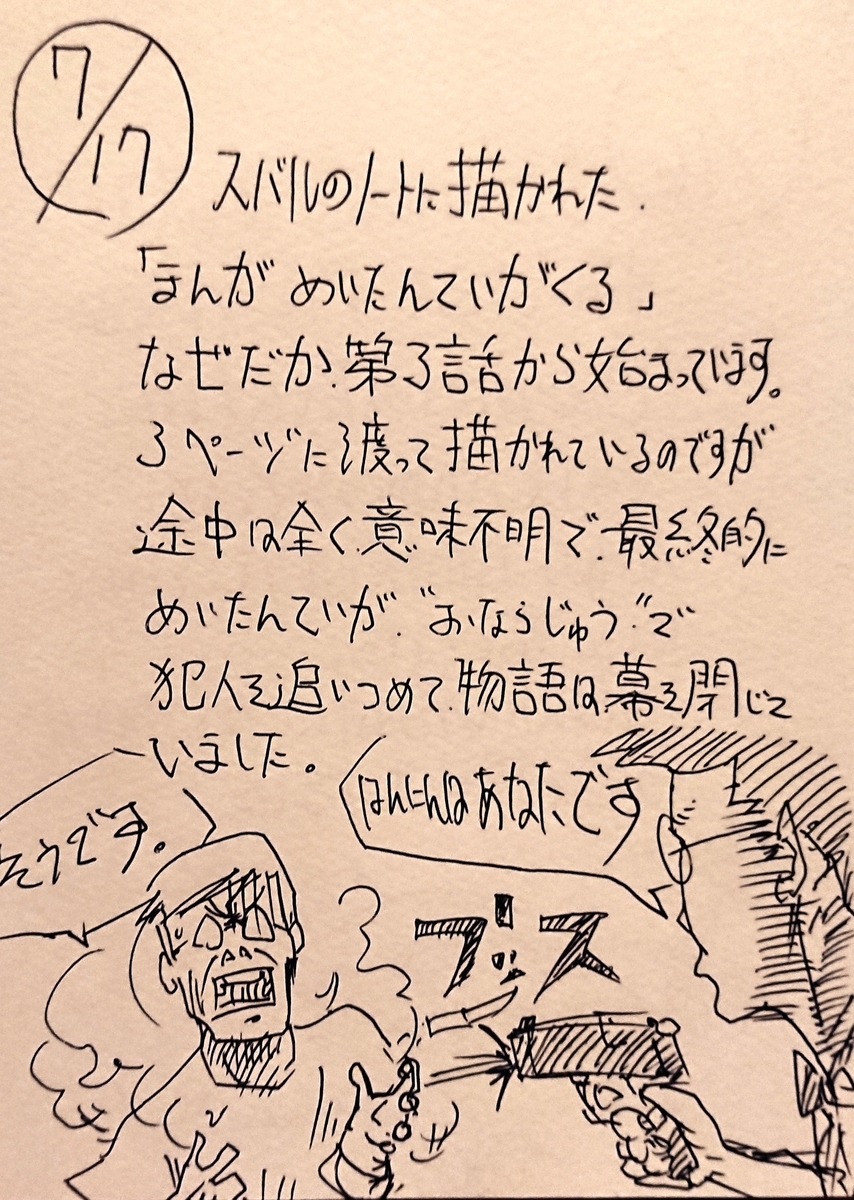 7/17
スバルのノートに描かれた.
「まんが めいたんていがくる」
なぜだか、第3話から始まっています。
3ページに渡って描かれているのですが
途中は全く意味不明で、最終的に
めいたんていが、“おならじゅう”で
犯人を追いつめて、物語は幕を閉じて
いました。
はんにんはあなたです
そうです。
ブス